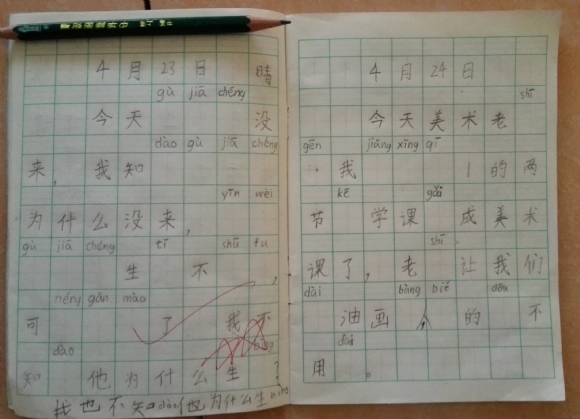 4月23日 晴
gù jiā chéng
今天 没
dào gù jiā chéng
来,我知
yīn wèi
为什么没来,
gù jiā chéng tǐ shū fu
生 不 ,
néng gǎn mào
可 了 我不
dào
知 他为什么生 ?
我也不知dào他为什么生
4月24日
shī
今天美术老
gēn jiāng xīng qī
我 1的两
kē gǎi
节 学课 成美术
shī
课了,老 让我们
dài bàng bié dōu
油画 个的 不
dài
用 。